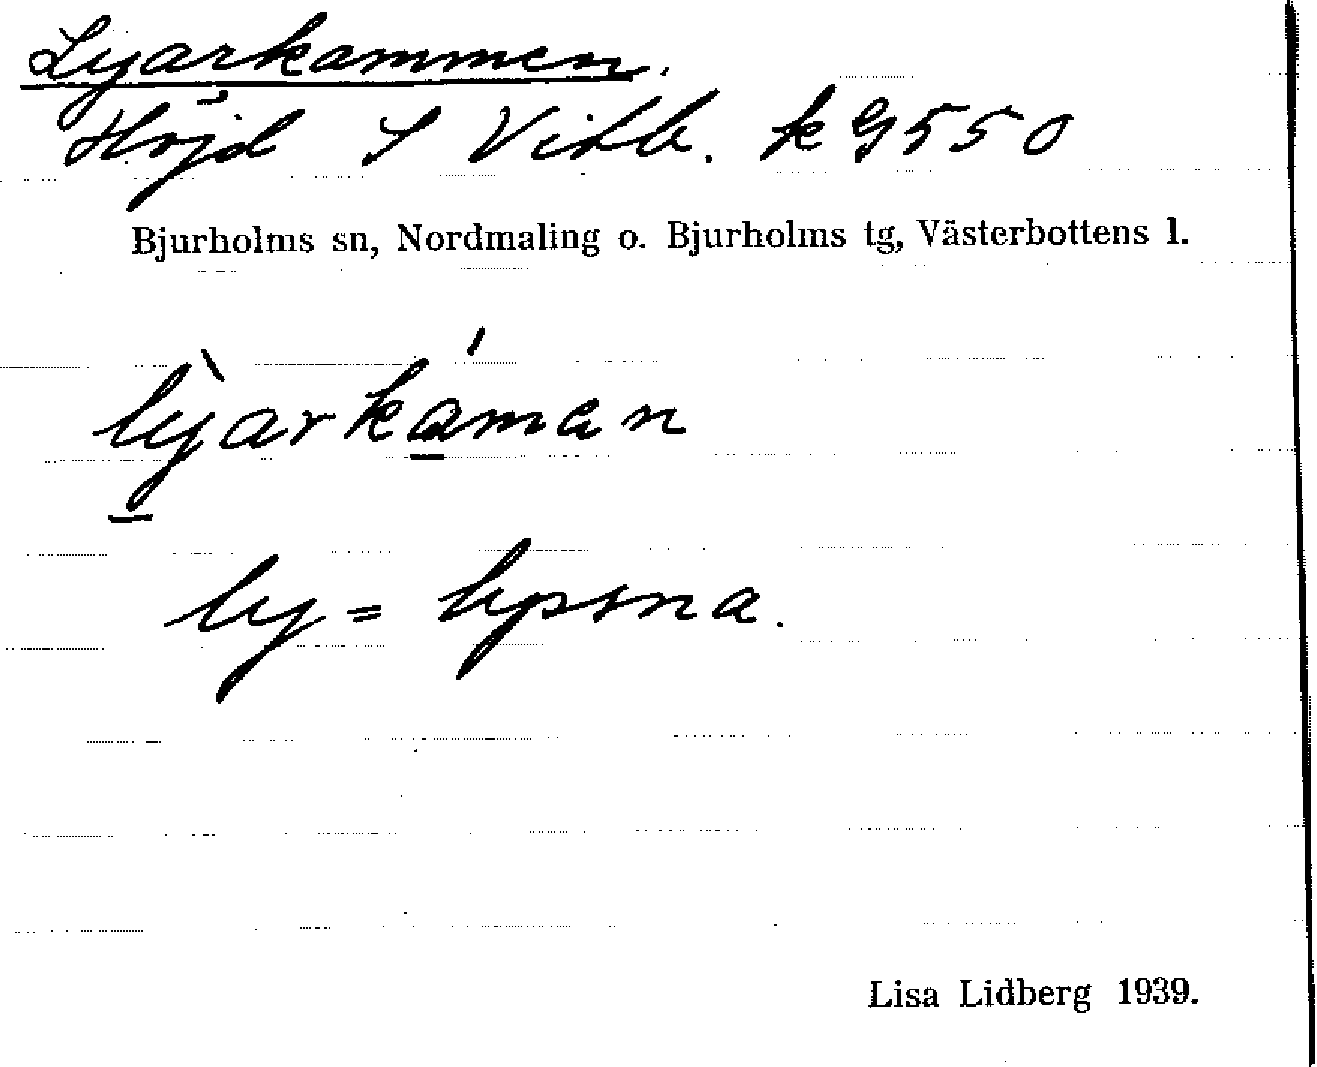 Lyarkammen.
Höjd S Vitb. k 9550
Bjurholms sn, Nordmaling o. Bjurholms tg, Västerbottens l.
lỳ̠arká̠man
ly = lyssna.
Lisa Lidberg 1939.